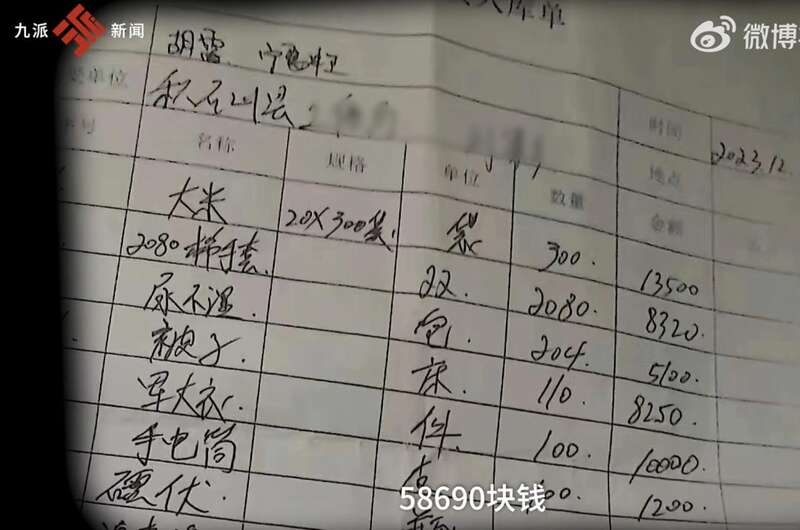 九派 新闻
微博
入库单
胡雷 宁
单位 积石山县
时间 2023.12.
名称 规格 单位 数量 地点
金额
大米 20X300袋. 袋 300. 13500
2080 手套. 双. 2080. 8320.
尿不湿. 包. 204. 5100.
被子. 床. 110. 8250.
军大衣. 件. 100. 10000.
手电筒 1200.
58690块钱